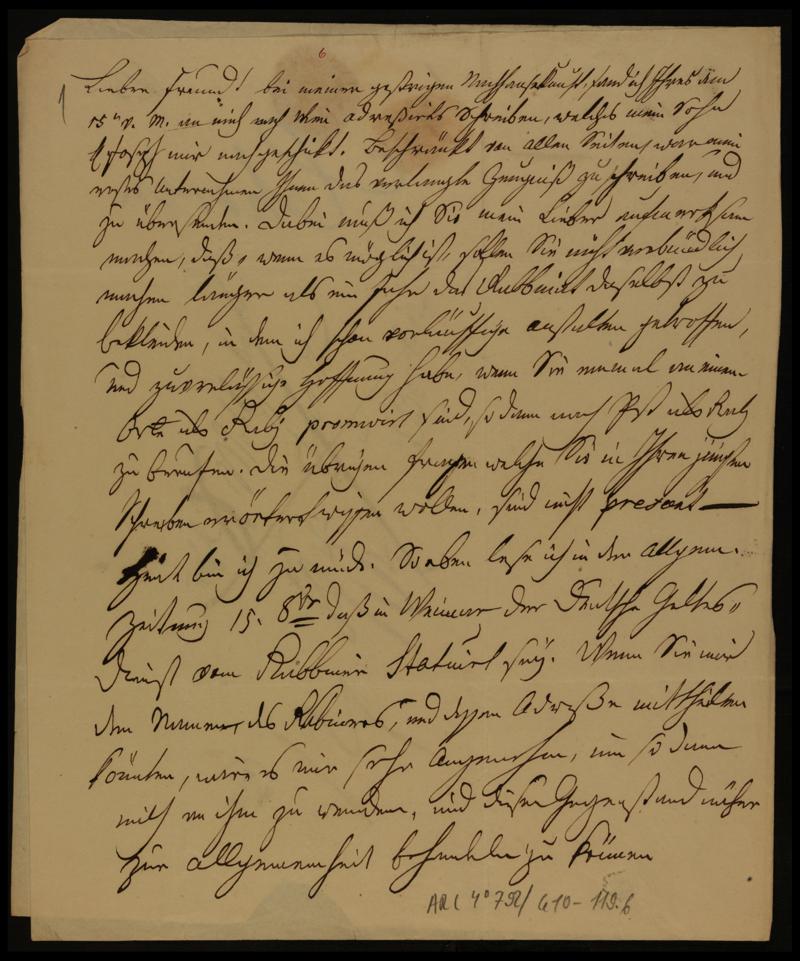 6
1
Lieber Freund! bei meiner gestrigen Nachhausekunft, fand ich Ihres am
15n v. M. an mich nach Wien adressirtes Schreiben, welches mein Sohn
Joseph mir nachgeschikt. Beschränkt von allen Seiten, war mein
erstes Unternehmen Ihnen das verlangte Zeugniß zu schreiben, und
zu übersenden. Dabei muß ich Sie mein Lieber aufmerksam
machen, daß, wenn es möglich ist, sollen Sie nicht verbindlich
machen länger als ein Jahr das Rabbinat daselbst zu
bekleiden, in dem ich schon vorläuffige anstalten getroffen,
und zuverlässige Hoffnung habe, wenn Sie einmal an einem
Orte als Rabj promovirt sind, sodann nach Pest als Rabj
zu berufen. Die übrigen fragen welche Sie in Ihren jüngsten
Schreiben erörtert wissen wollen, sind nicht present —
heut bin ich zu müde. So eben lese ich in der Allgem.
Zeitung 15. 8br daß in Weimar der Deutsche Gottes-
dienst vom Rabbiner Statuirt sey. Wenn Sie mir
den Namen, des Rabiners, und dessen Adresse mittheilen
könnten, wäre es mir sehr Angenehm, um sodann
mich an ihm zu wenden, und diesen Gegenstand näher
zur allgemeinheit behandeln zu können
ARC 4° 792/ G10-119.6